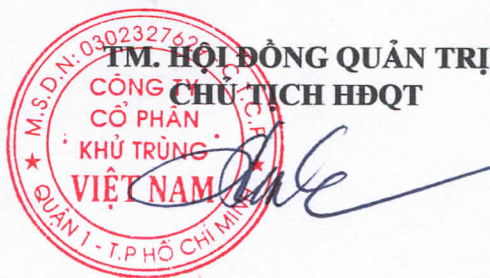 TM. HỘI ĐỒNG QUẢN TRỊ
CHỦ TỊCH HĐQT
M.S.D.N: 0302327629
C.T.C.P
CÔNG TY
CỔ PHẦN
KHỬ TRÙNG
VIỆT NAM
QUẬN 1 - T.P HỒ CHÍ MINH